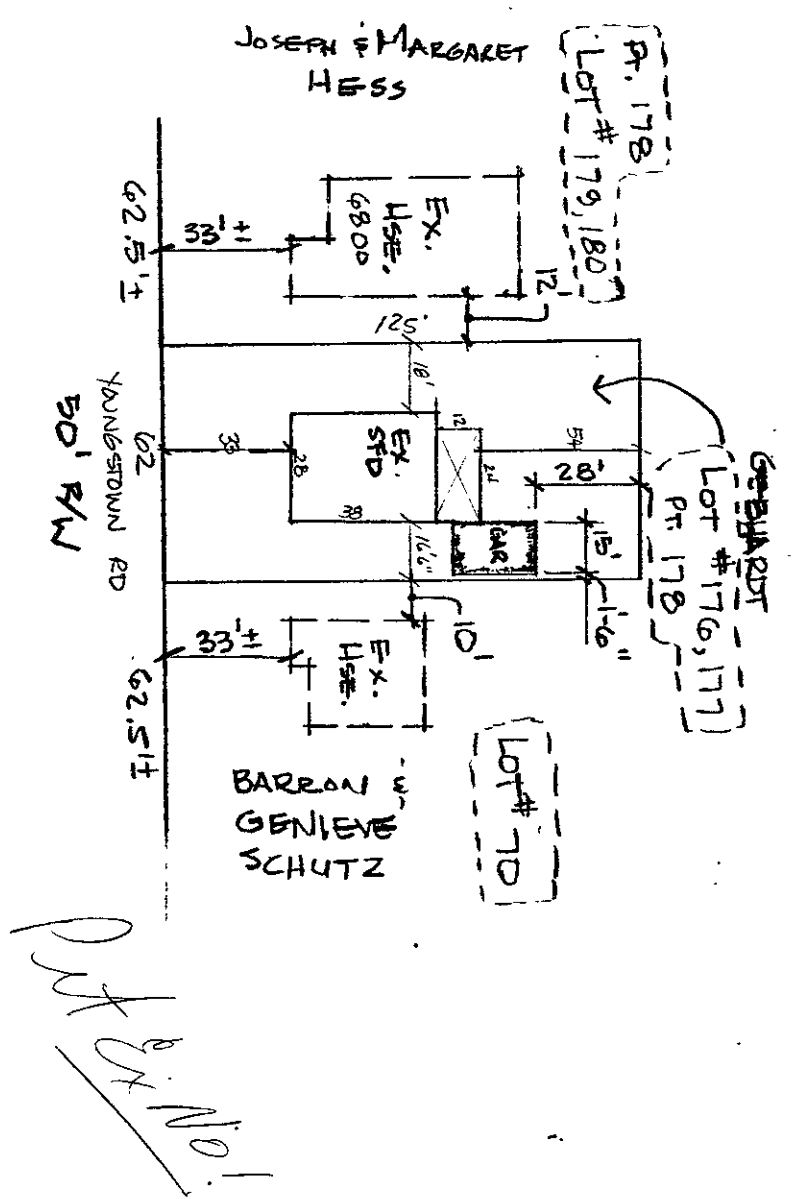 JOSEPH & MARGARET
HESS
Pt. 178
LOT # 179, 180
EX.
HSE.
6800
62.5'±
33'±
12'
125'
18'
YOUNGSTOWN RD
50' R/W
62
33
28
EX.
SFD
38
12
24
54
28'
GAR
15'
1'-6"
16'6"
10'
GEBHARDT
LOT # 176, 177
Pt. 178
33'±
62.5'±
EX.
HSE.
BARRON &
GENIEVE
SCHUTZ
LOT # 70
Pet Ex No 1